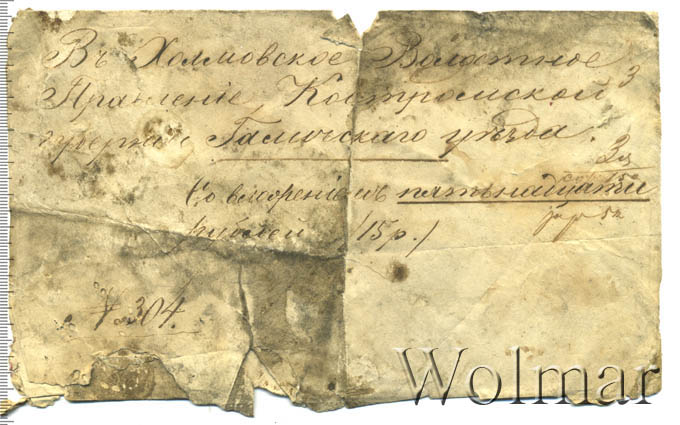 Въ Холмовское Волостное
Правленіе, Костромской
губерніи, Галичскаго уѣзда.
3
3
Со вложеніемъ пятьнадцати
рублей /15 р./
№ 304.
Wolmar